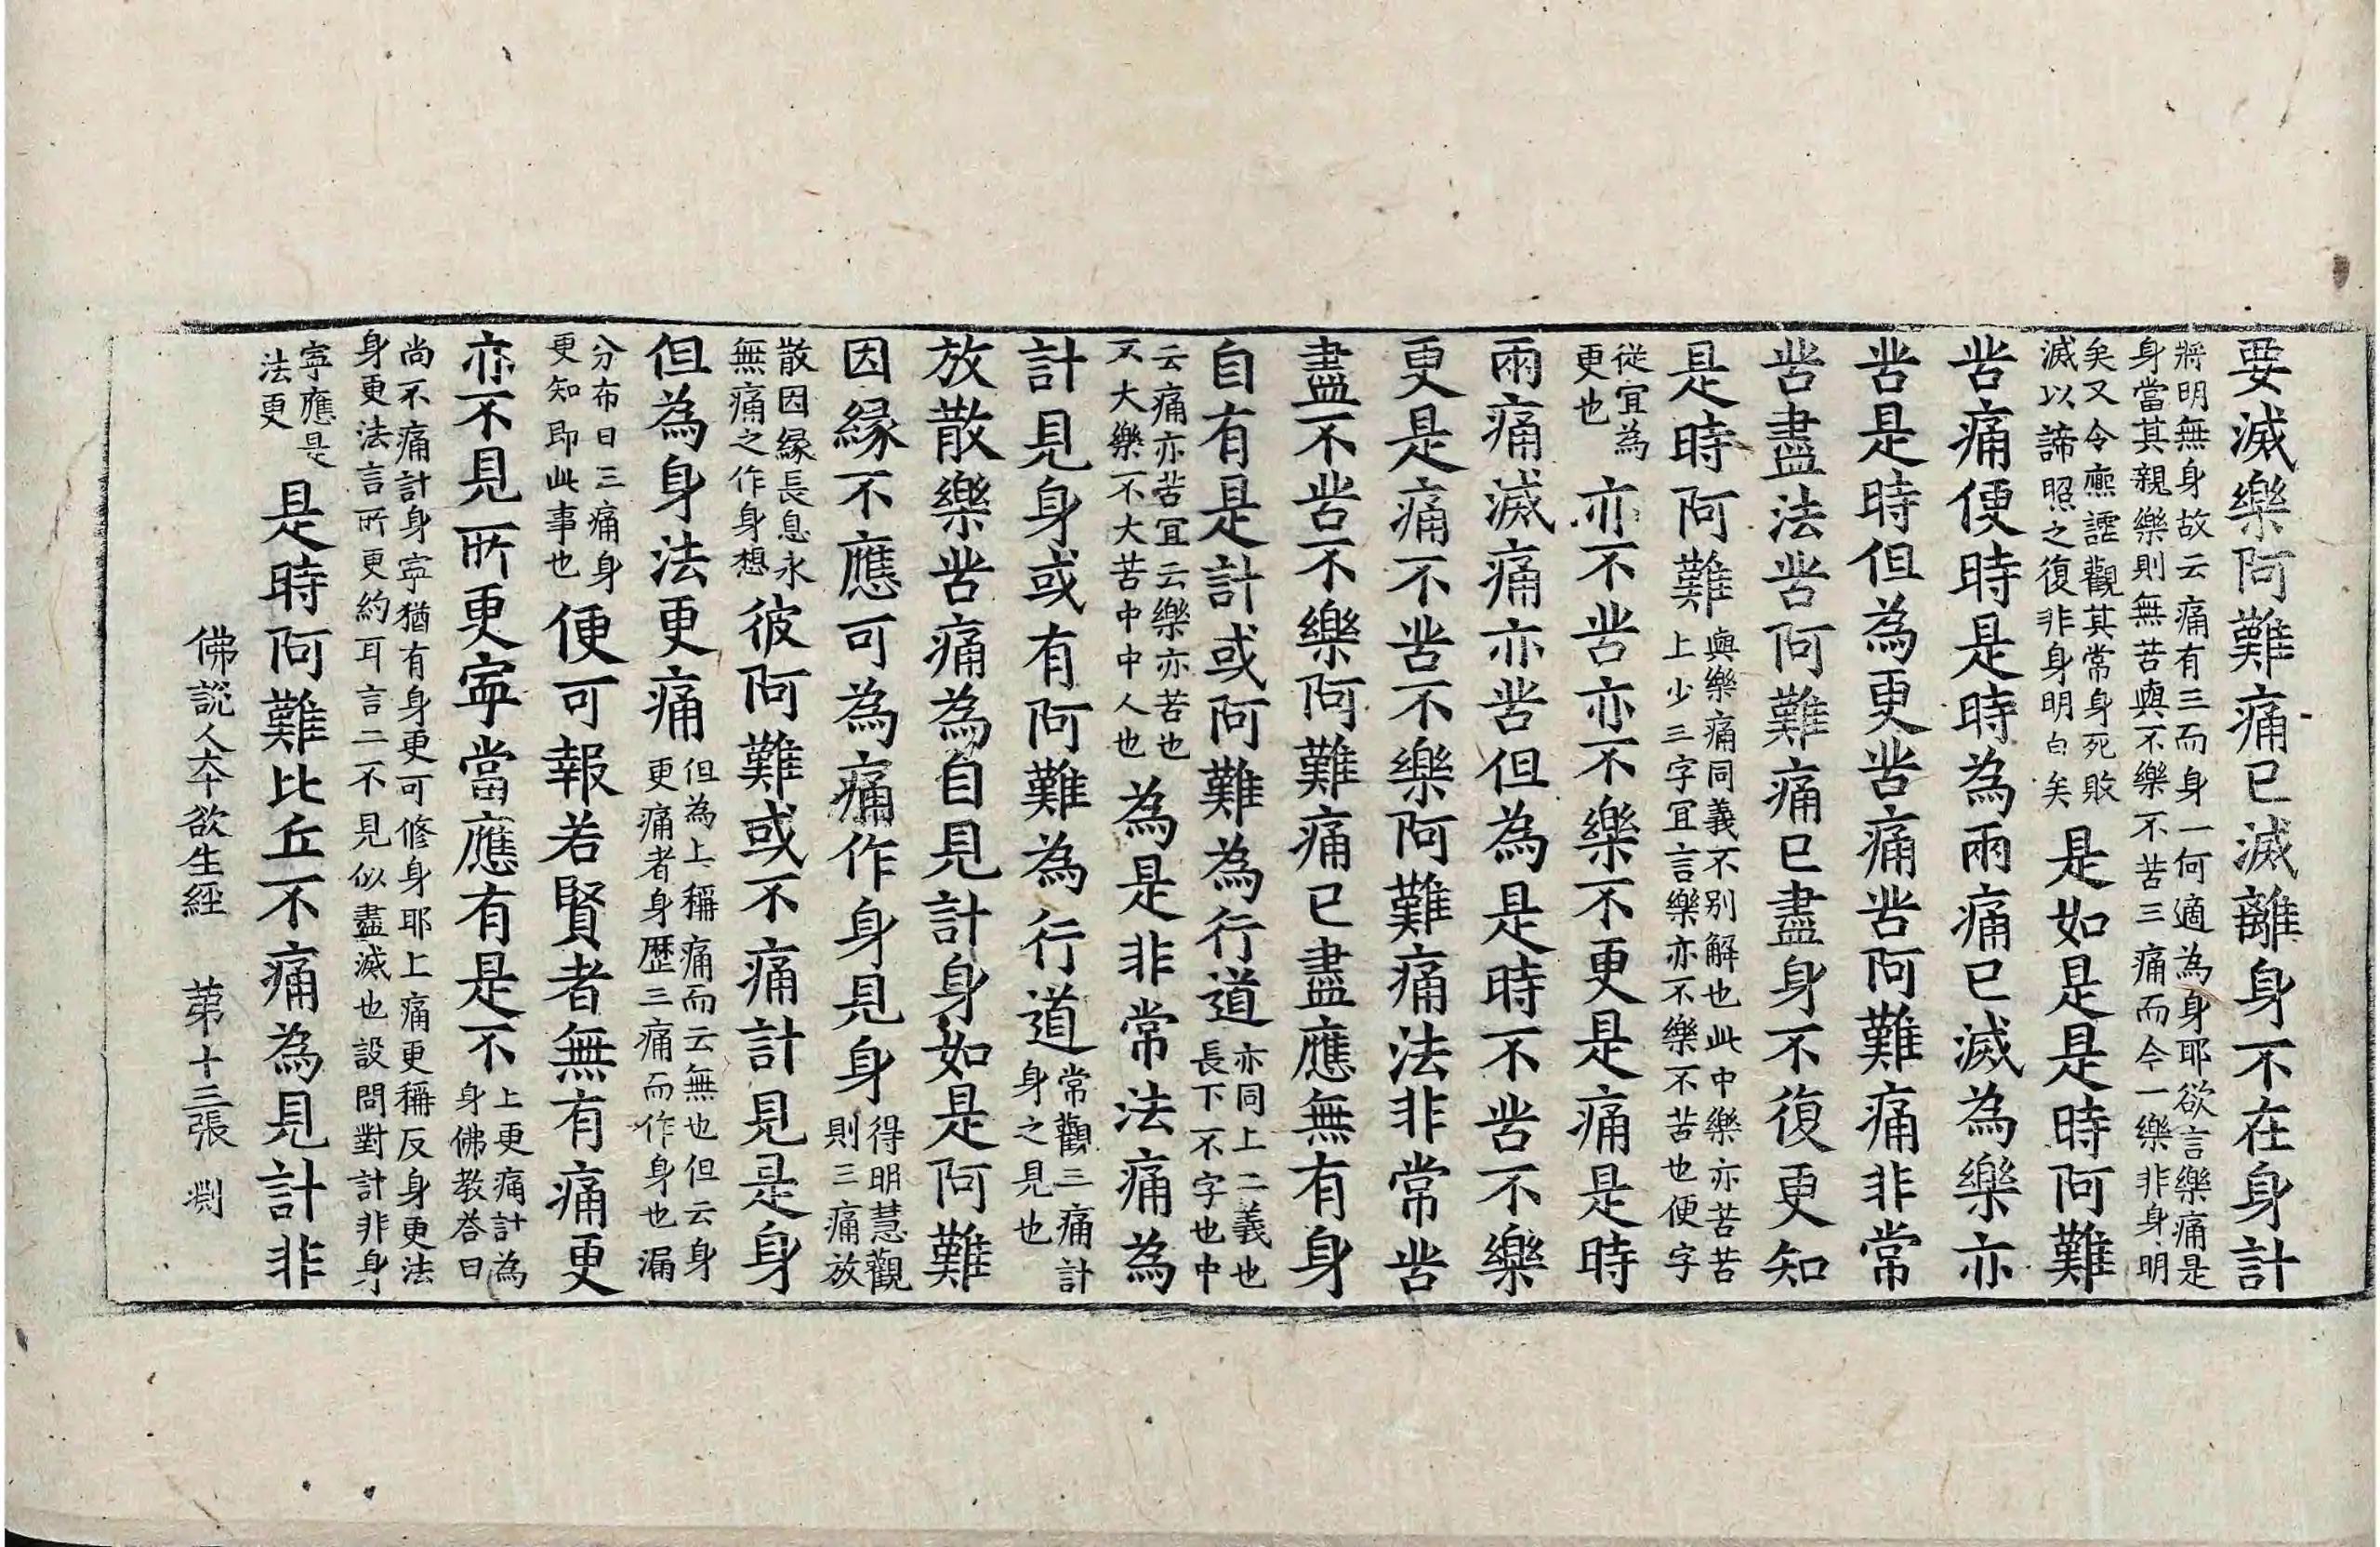 要滅樂阿難痛已滅離身不在身計
將明無身故云痛有三而身一何適為身耶欲言樂痛是
身當其親樂則無苦與不樂不苦三痛而今一樂非身明
矣又令應諲觀其常身死敗
滅以諦照之復非身明白矣
是如是是時阿難
苦痛便時是時為兩痛已滅為樂亦
苦是時但為更苦痛苦阿難痛非常
苦盡法苦阿難痛已盡身不復更知
是時阿難
與樂痛同義不別解也此中樂亦苦苦
上少三字宜言樂亦不樂不苦也便字
從宜為
更也
亦不苦亦不樂不更是痛是時
兩痛滅痛亦苦但為是時不苦不樂
更是痛不苦不樂阿難痛法非常苦
盡不苦不樂阿難痛已盡應無有身
自有是計或阿難為行道
亦同上二義也
長下不字也中
云痛亦苦宜云樂亦苦也
又大樂不大苦中中人也
為是非常法痛為
計見身或有阿難為行道
常觀三痛計
身之見也
放散樂苦痛為自見計身如是阿難
因緣不應可為痛作身見身
得明慧觀
則三痛放
散因緣長息永
無痛之作身想
彼阿難或不痛計見是身
但為身法更痛
但為上稱痛而云無也但云身
更痛者身歷三痛而作身也漏
分布日三痛身
更知即此事也
便可報若賢者無有痛更
亦不見所更寧當應有是不
上更痛計為
身佛教荅曰
尚不痛計身寧猶有身更可修身耶上痛更稱反身更法
身更法言所更約耳言二不見似盡滅也設問對計非身
寧應是
法更
是時阿難比丘不痛為見計非
佛說人本欲生經 第十三張